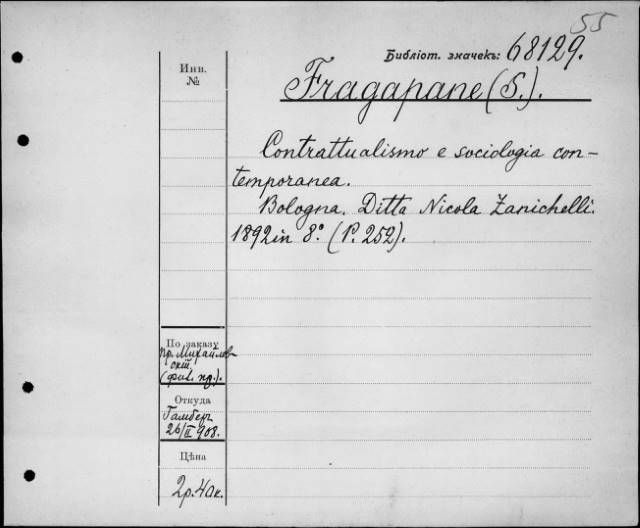 55
Библіот. значекъ: 68129.
Инв.
№
Fragapane (S.).
Contrattualismo e sociologia con-
temporanea.
Bologna. Ditta Nicola Zanichelli.
1892 in 8.° (P. 252).
По заказу
пр. Михайлов-
скій
Откуда
26/II 908.
Цѣна
2 р. 40 к.